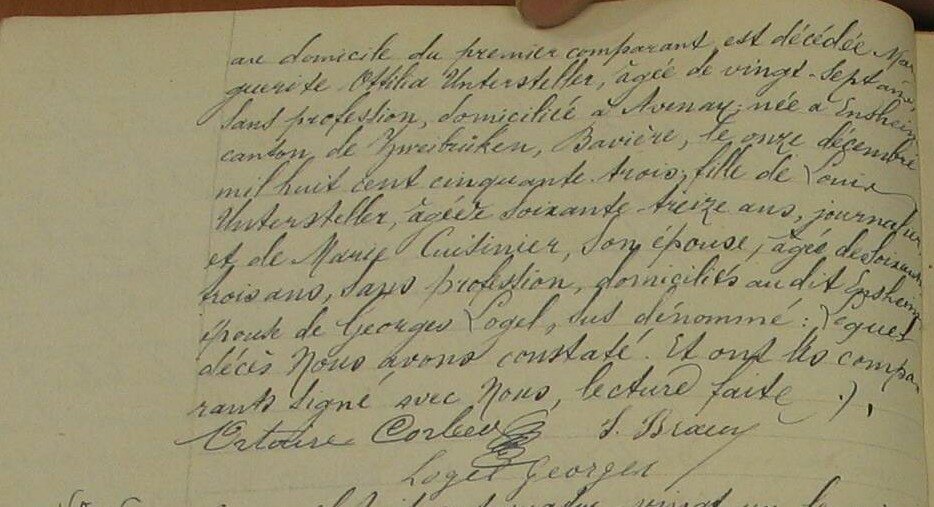 au domicile du premier comparant, est décédée Mar
guerite Ottilia Untersteller, âgée de vingt-sept ans,
sans profession, domiciliée à Avenay, née à Ensheim
canton de Zweibrüken, Bavière, le onze décembre
mil huit cent cinquante-trois, fille de Louis
Untersteller, âgé de soixante-treize ans, journalier
et de Marie Cuisinier, son épouse, âgée de soixante
trois ans, sans profession, domiciliés au dit Ensheim
épouse de Georges Logel, sus dénommé: Lequel
décès Nous avons constaté. Et ont les compa-
rants signé avec Nous, lecture faite ./.
Corbeu
Logel Georges
vingt un le